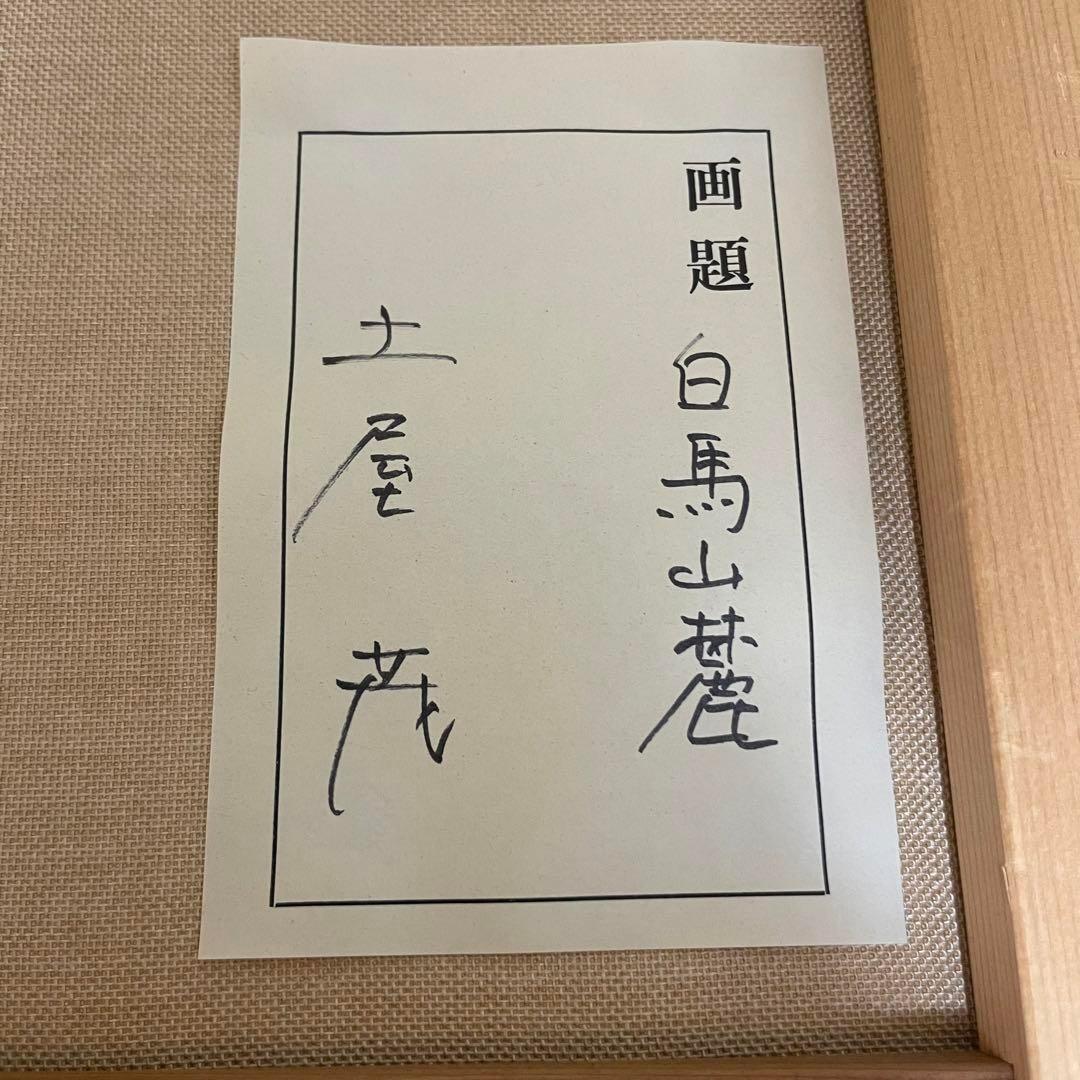 画題 白馬山麓
土屋 茂